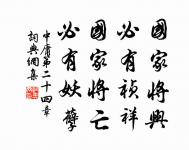 國家將興
必有禎祥
國家將亡
必有妖孽
中庸第二十四章
詞典網集